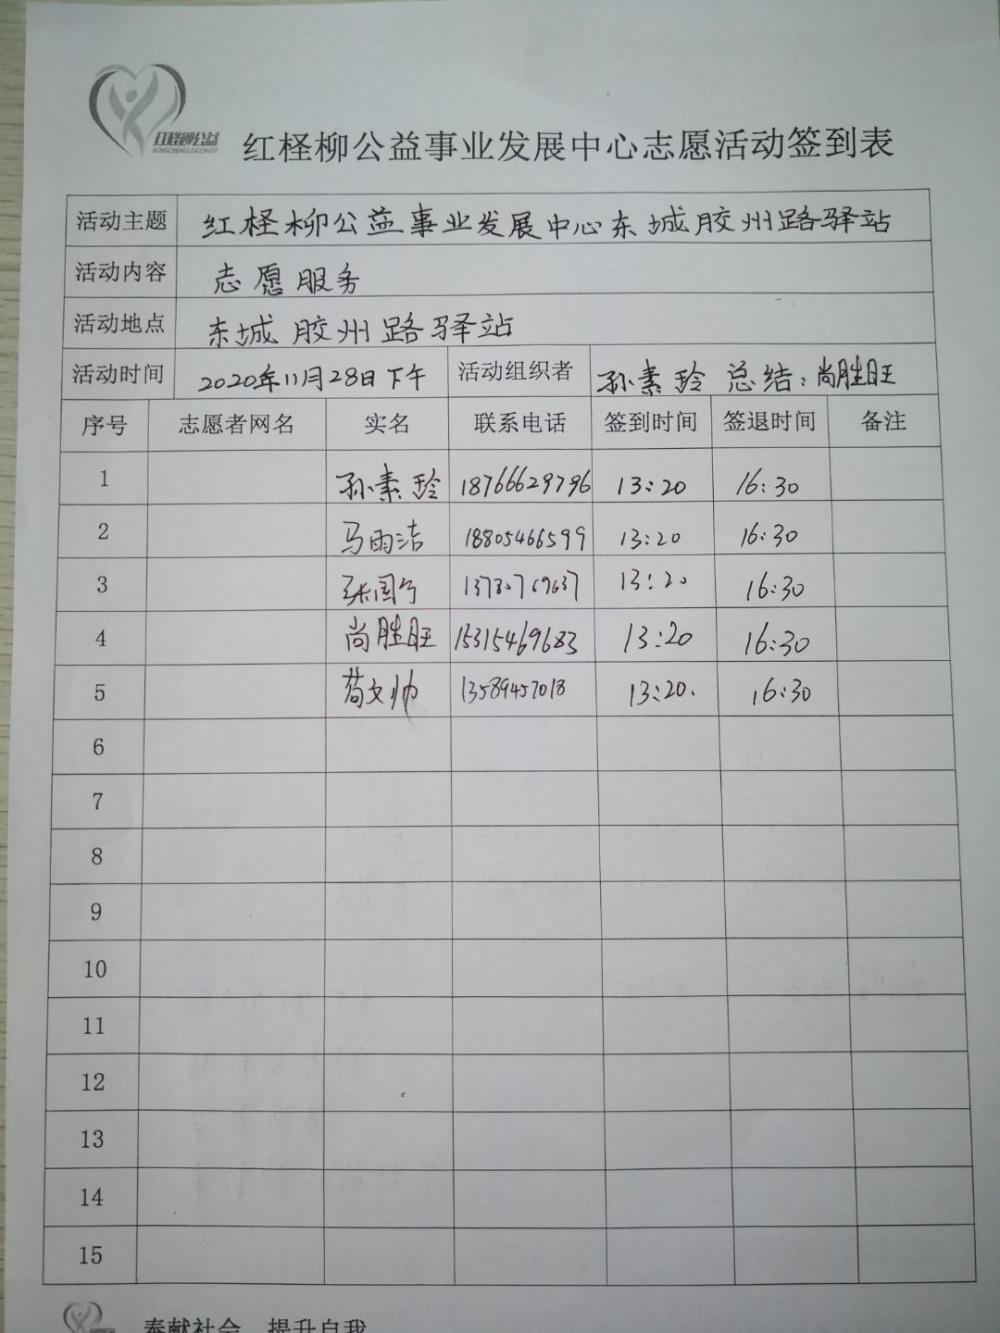 红柽柳公益
红柽柳公益事业发展中心志愿活动签到表
活动主题 红柽柳公益事业发展中心东城胶州路驿站
活动内容 志愿服务
活动地点 东城胶州路驿站
活动时间 2020年11月28日下午 活动组织者 孙素玲 总结：尚胜旺
序号 志愿者网名 实名 联系电话 签到时间 签退时间 备注
1 孙素玲 18766629796 13:20 16:30
2 马雨洁 18805466599 13:20 16:30
3 13:20 16:30
4 尚胜旺 15315469683 13:20 16:30
5 苟文帅 13589457018 13:20. 16:30
6
7
8
9
10
11
12
13
14
15
奉献社会 提升自我